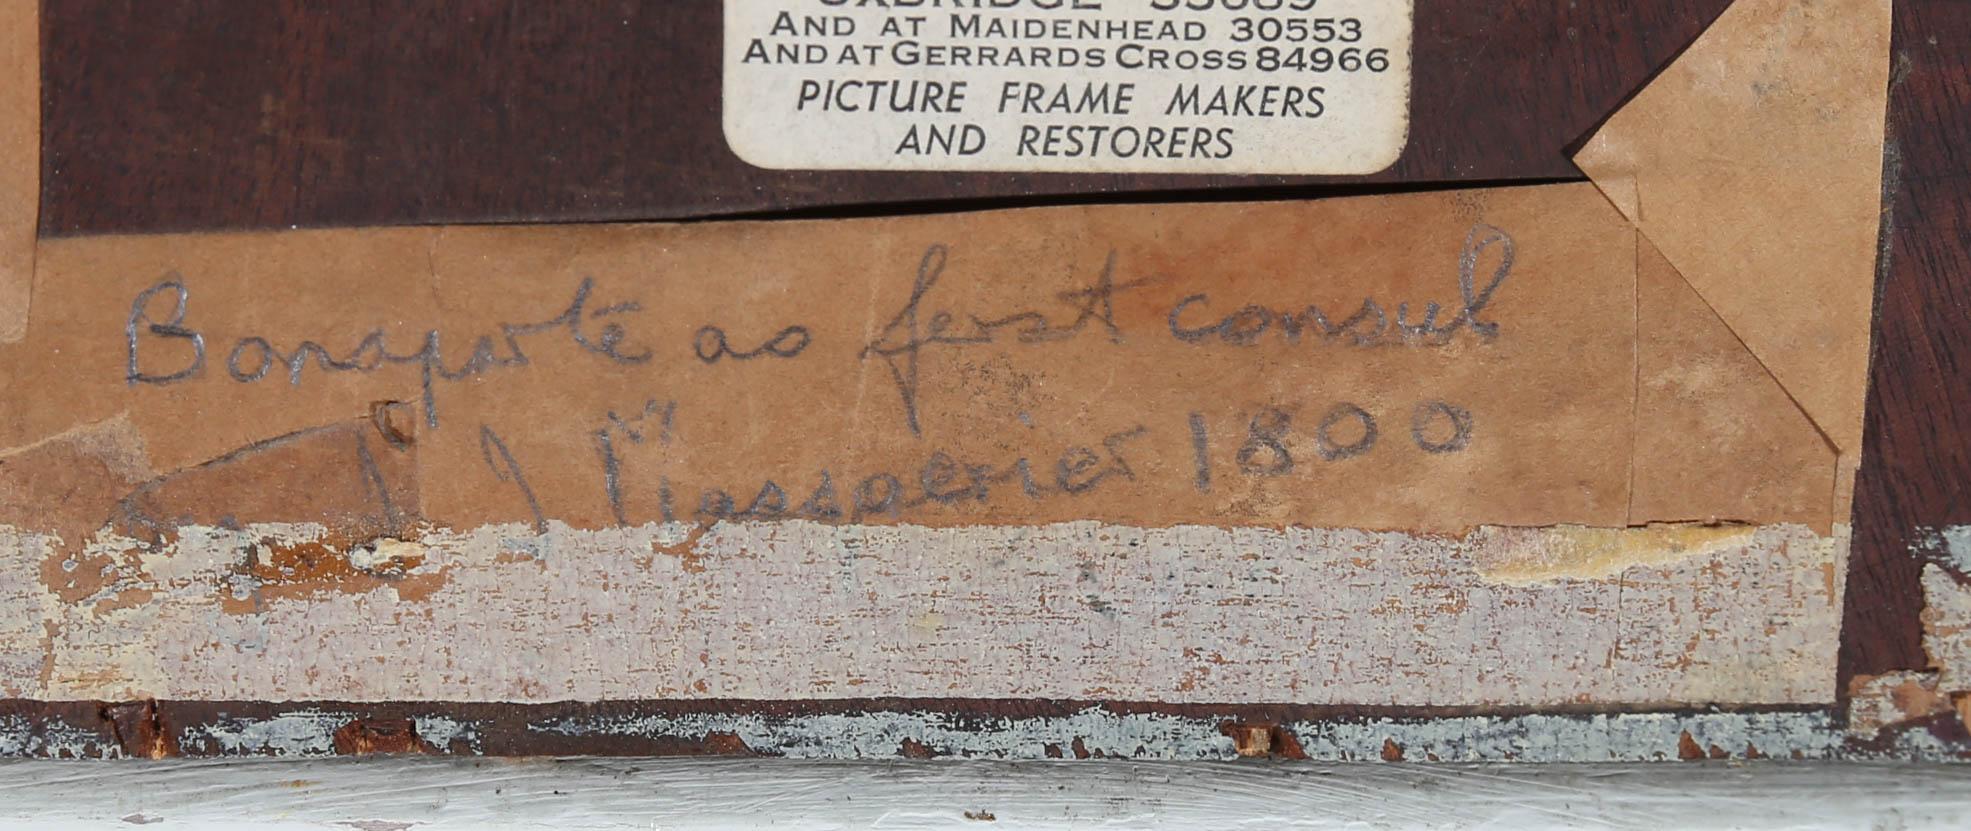 UXBRIDGE 35689
AND AT MAIDENHEAD 30553
AND AT GERRARDS CROSS 84966
PICTURE FRAME MAKERS
AND RESTORERS
Bonaparte as first consul
J Masquerier 1800